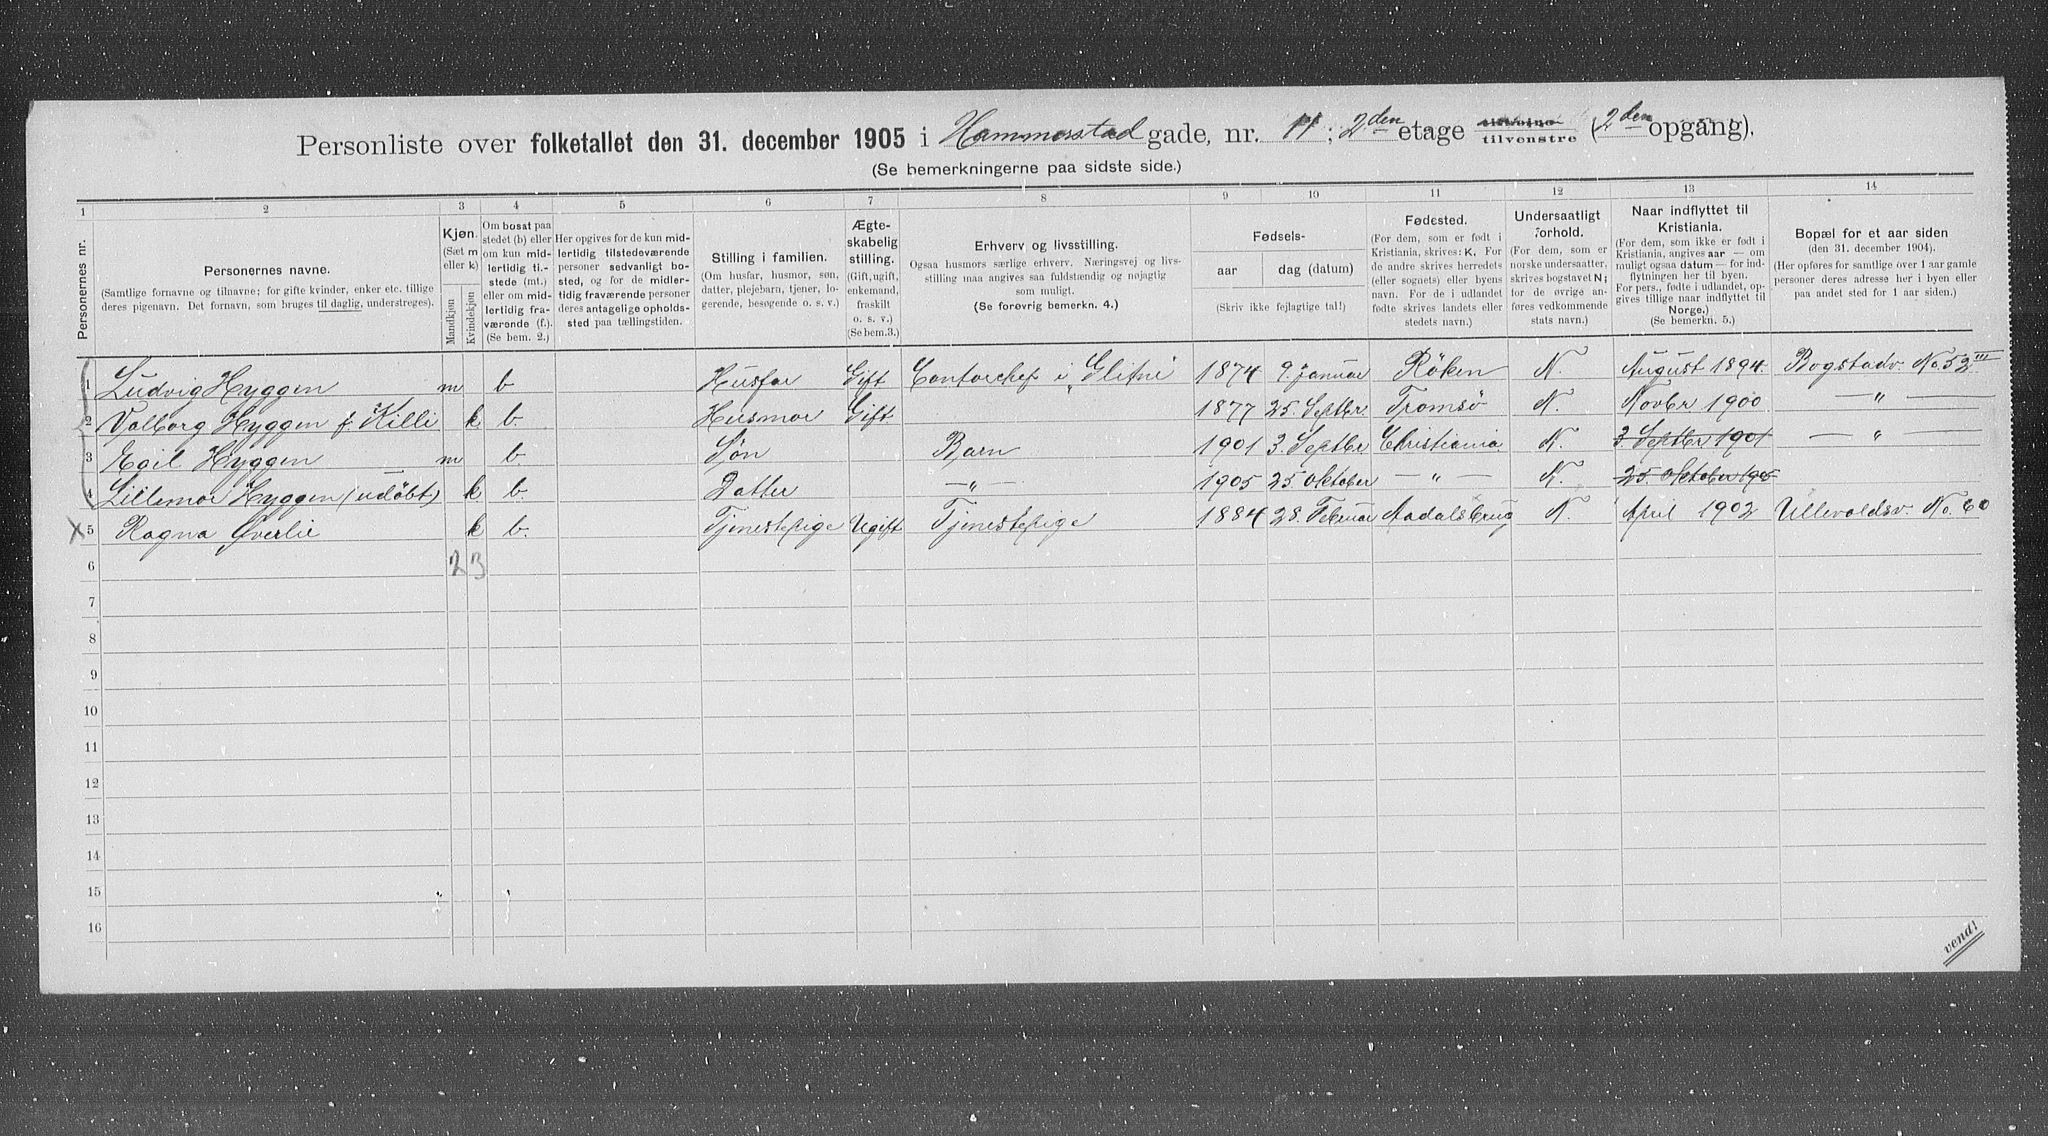 Personliste over folketallet den 31. december 1905 i Hammerstad gade, nr. 11; 2den etage tilhøire tilvenstre (2den opgang).
(Se bemerkningerne paa sidste side.)
1 2 3 4 5 6 7 8 9 10 11 12 13 14
Personernes nr.
Personernes navne.
(Samtlige fornavne og tilnavne; for gifte kvinder, enker etc. tillige deres pigenavn. Det fornavn, som bruges til daglig, understreges).
Kjøn.
(Sæt m eller k)
Mandkjøn
Kvindekjøn
Om bosat paa stedet (b) eller om kun midlertidig tilstede (mt.) eller om midlertidig fraværende (f.). (Se bem. 2.)
Her opgives for de kun midlertidig tilstedeværende personer sedvanligt bosted, og for de midlertidig fraværende personer deres antagelige opholdssted paa tællingstiden.
Stilling i familien.
(Om husfar, husmor, søn, datter, plejebarn, tjener, logerende, besøgende o. s. v.)
Ægteskabelig stilling.
(Gift, ugift, enkemand, fraskilt o. s. v.)
(Se bem.3.)
Erhverv og livsstilling.
Ogsaa husmors særlige erhverv. Næringsvej og livsstilling maa angives saa fuldstændig og nøjagtig som muligt.
(Se forøvrig bemerkn. 4.)
Fødsels-
aar
dag (datum)
(Skriv ikke fejlagtige tal!)
Fødested.
(For dem, som er født i Kristiania, skrives: K. For de andre skrives herredets (eller sognets) eller byens navn. For de i udlandet fødte skrives landets eller stedets navn.)
Undersaatligt forhold.
(For dem, som er norske undersaatter, skrives bogstavet N; for de øvrige anføres vedkommende stats navn.)
Naar indflyttet til Kristiania.
(For dem, som ikke er født i Kristiania, angives aar — om muligt ogsaa datum — for indflytningen her til byen. For pers., fødte i udlandet, opgives tillige naar indflyttet til Norge.)
(Se bemerkn. 5.)
Bopæl for et aar siden
(den 31. december 1904.)
(Her opføres for samtlige over 1 aar gamle personer deres adresse her i byen eller paa andet sted for 1 aar siden.)
1 Ludvig Hyggen m b Husfar Gift Contorchef i „Glitne 1874 9 Januar Röken N. August 1894. Bogstadv. No. 52 III
2 Valborg Hyggen f. Killi k b. Husmor Gift 1877 25. Septbr Tromsø N. Novbr 1900 — " —
3 Egil Hyggen m b. Søn Barn 1901 3. Septbr Christiania N. 3 Septbr 1901 — " —
4 Lillemor Hyggen (udöbt) k b. Datter — " — 1905 25. Oktober — " — N. 25. Oktober 1905
X 5 Ragna Øverlie k b. Tjenestepige Ugift Tjenestepige 1884 28. Februar Aadalsbrug N April 1902 Ullevoldsv. No. 60
6 2 3
7
8
9
10
11
12
13
14
15
16
vend!